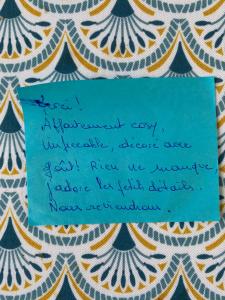 Merci!
Appartement cosy,
Impeccable, décoré avec
goût! Rien ne manque,
j'adore les petits détails.
Nous reviendrons.